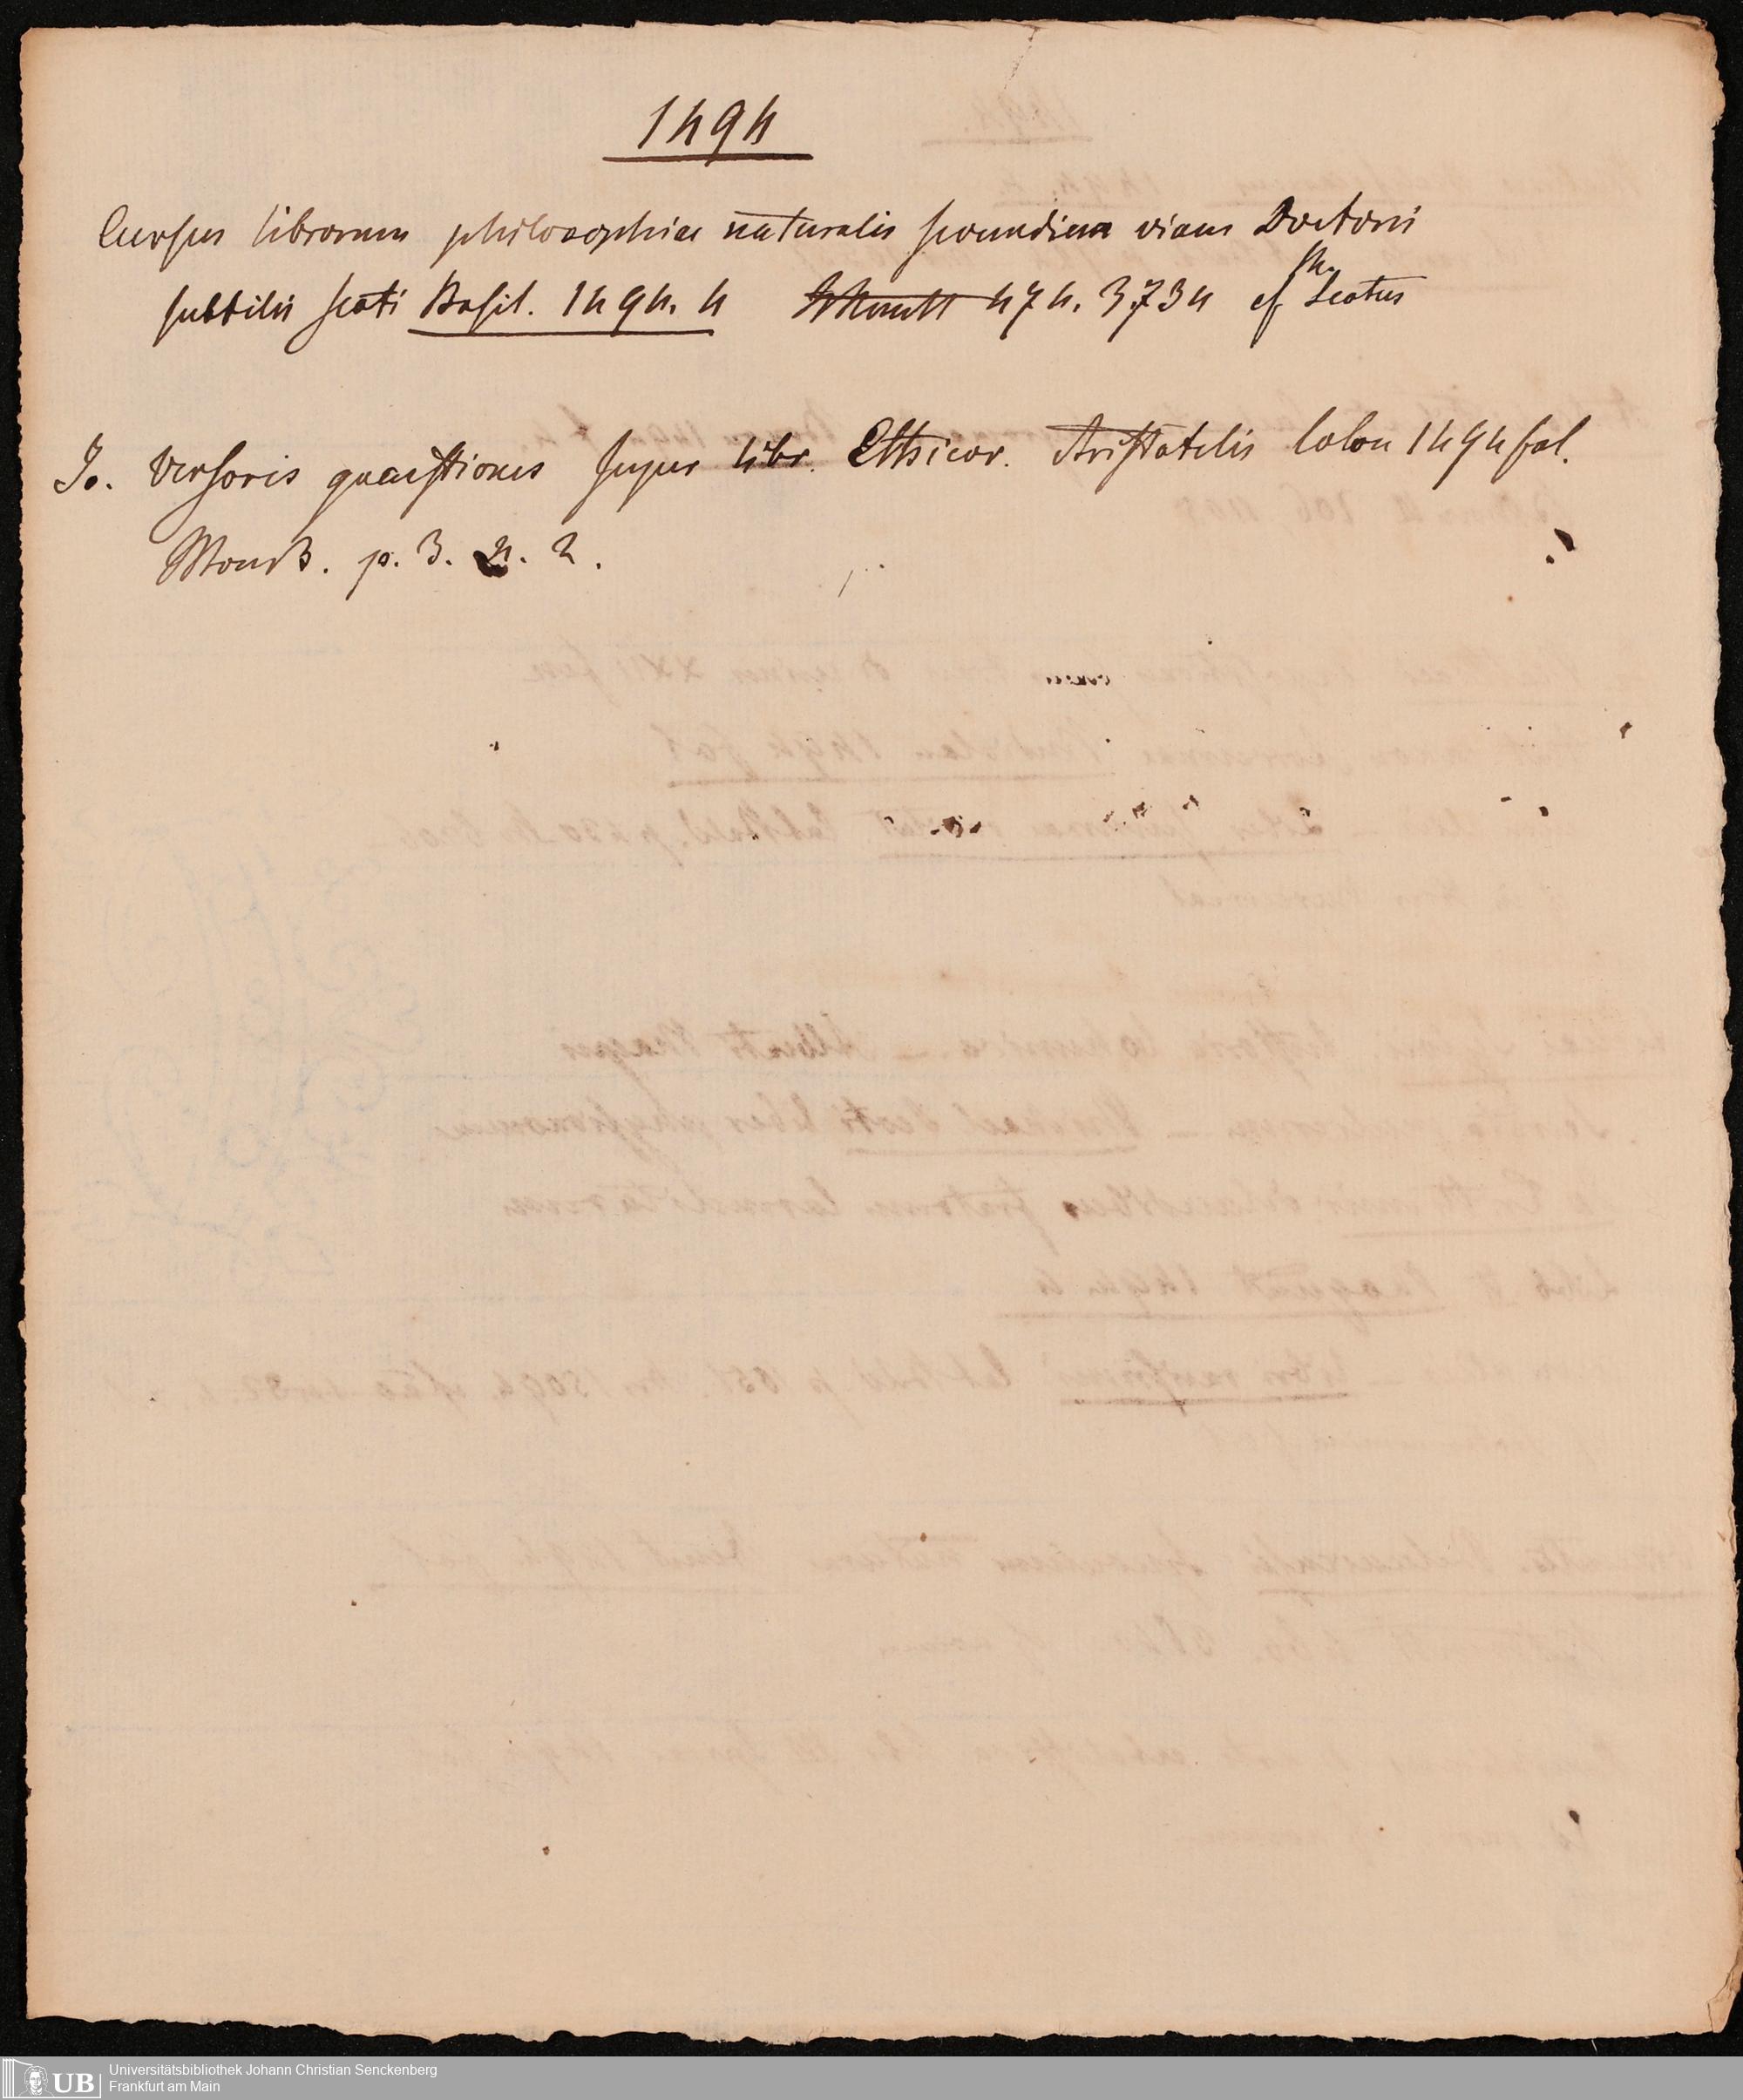 1494
Cursus librorum philosophiae naturalis secundum viam Doctoris
subtilis scoti Basil. 1494. 4 474. 3734 cf Scotus
Jo. Versoris quaestiones super libr. Ethicor. Aristotelis Colon 1494 fol.
p. 3. n. 2.
UB Universitätsbibliothek Johann Christian Senckenberg
Frankfurt am Main